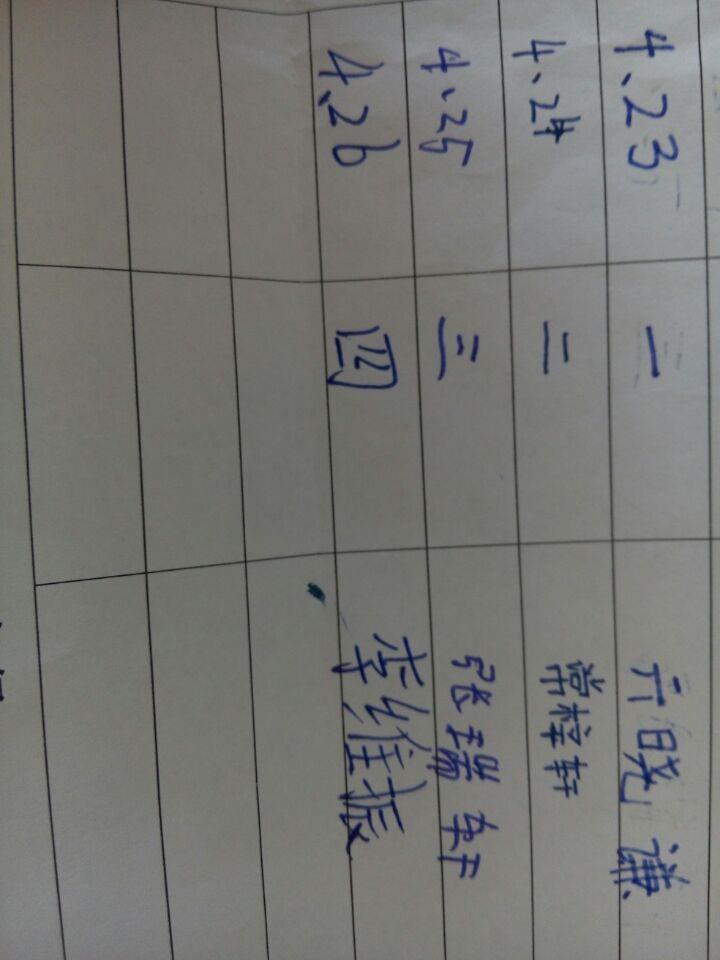 4.23 一 亓晓谦
4.24 二 常梓轩
4.25 三 张瑞轩
4.26 四 李维振